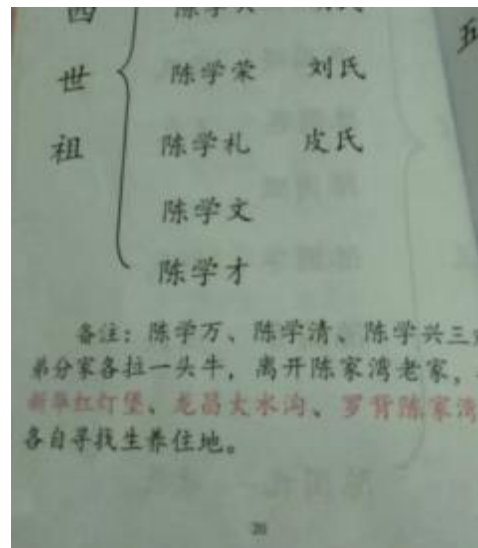 四 陈学
世 陈学荣 刘氏
祖 陈学礼 皮氏
陈学文
陈学才
备注：陈学万、陈学清、陈学兴三
弟分家各拉一头牛，离开陈家湾老家，
新华红灯堡、龙昌大水沟、罗背陈家湾
各自寻找生养住地。
20